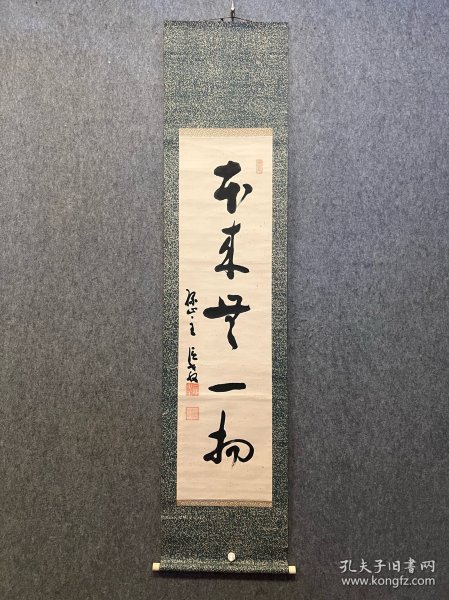 本来無一物
孔夫子旧书网
www.kongfz.com